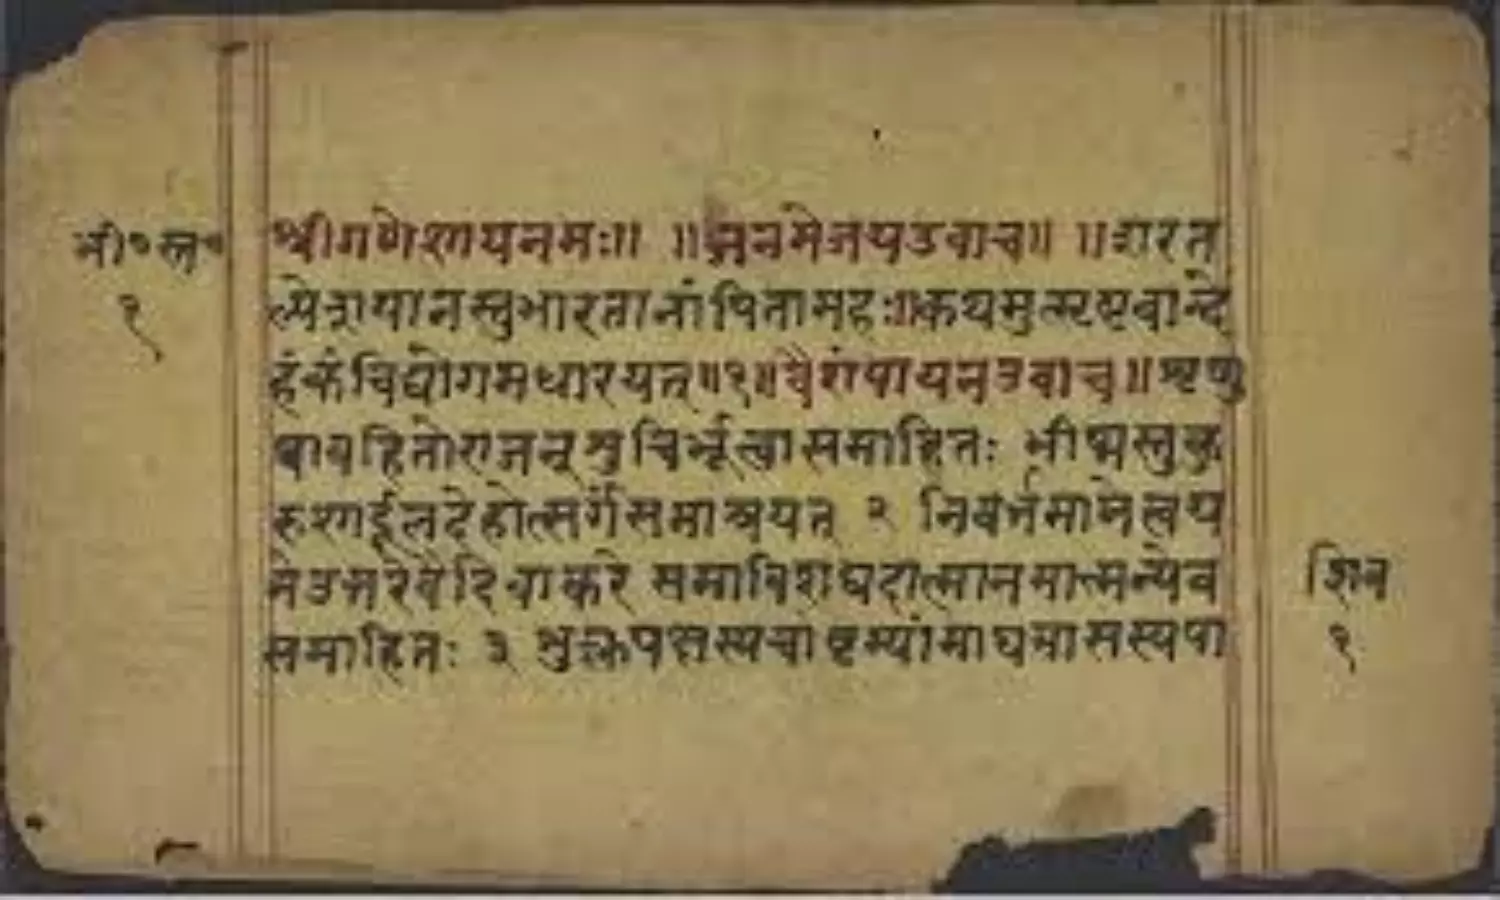 भी॰स्त॰
१
श्रीगणेशायनमः॥ ॥जनमेजयउवाच॥ ॥शरत
ल्पेशयानस्तुभारतानांपितामहः॥कथमुत्सृष्टवान्दे
हंकंचिद्योगमधारयत्॥१॥वैशंपायनउवाच॥शृणु
ष्वावहितोराजन्शुचिर्भूत्वासमाहितः भीष्मस्तुकु
रुशार्दूलदेहोत्सर्गंसमाश्रयत् २ निवर्त्तमात्रेत्वय
नेउत्तरेवैदिवाकरे समाविशद्यदात्मानमात्मन्येव
समाहितः ३ शुक्लपक्षस्यचाष्टम्यांमाघमासस्यपा
शिव
१